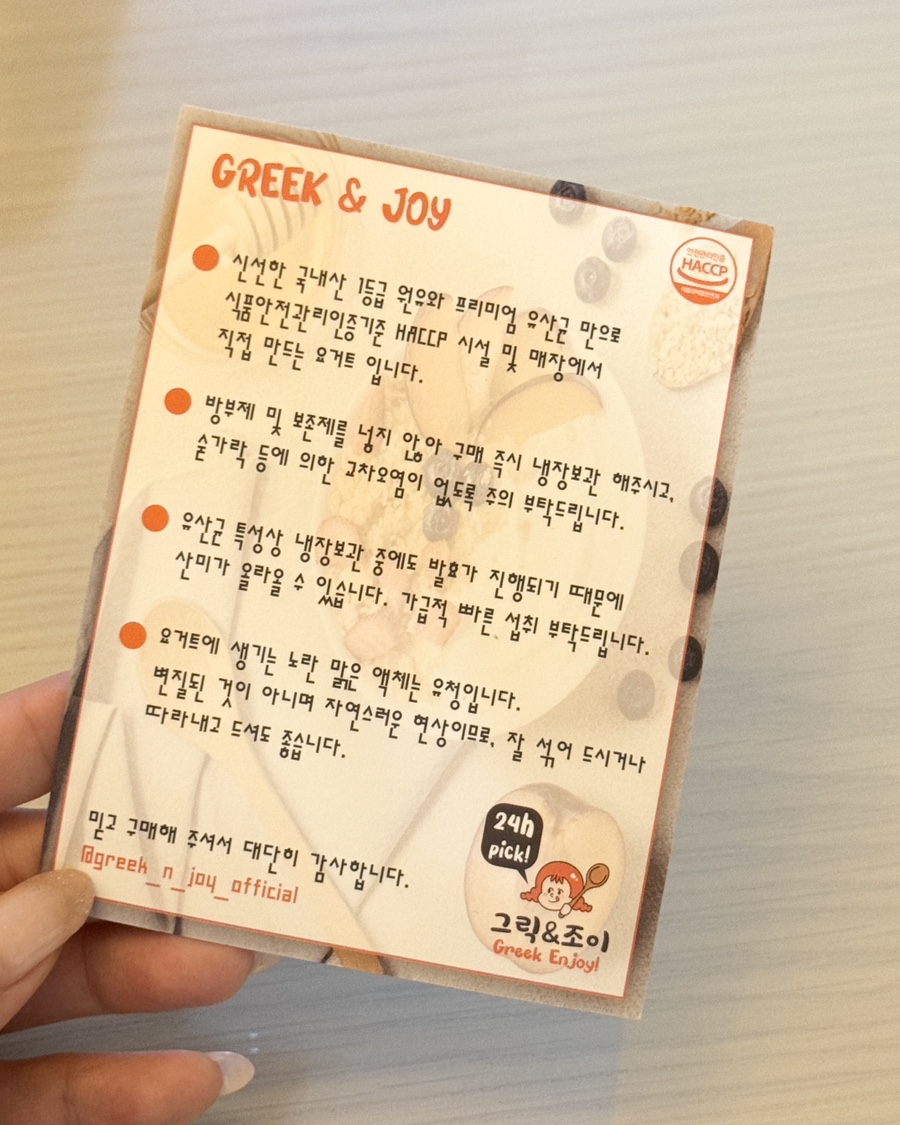 GREEK & JOY
안전관리인증
HACCP
식품의약품안전처
신선한 국내산 1등급 원유와 프리미엄 유산균 만으로
식품안전관리인증기준 HACCP 시설 및 매장에서
직접 만드는 요거트 입니다.
방부제 및 보존제를 넣지 않아 구매 즉시 냉장보관 해주시고,
숟가락 등에 의한 교차오염이 없도록 주의 부탁드립니다.
유산균 특성상 냉장보관 중에도 발효가 진행되기 때문에
산미가 올라올 수 있습니다. 가급적 빠른 섭취 부탁드립니다.
요거트에 생기는 노란 맑은 액체는 유청입니다.
변질된 것이 아니며 자연스러운 현상이므로, 잘 섞어 드시거나
따라내고 드셔도 좋습니다.
믿고 구매해 주셔서 대단히 감사합니다.
@greek_n_joy_official
24h
pick!
그릭&조이
Greek Enjoy!